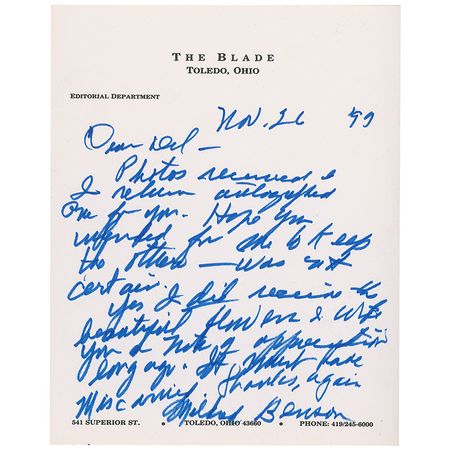 THE BLADE
TOLEDO, OHIO
EDITORIAL DEPARTMENT
Nov. 26 99
Dear Del -
Photos received &
I return autographed
one to you. Hope you
intended for me to keep
the others - was not
certain.
Yes I did receive the
beautiful flowers & wrote
you a note of appreciation
long ago. It must have
miscarried
Thanks, again
Mildred Benson
541 SUPERIOR ST. • TOLEDO, OHIO 43660 • PHONE: 419/245-6000